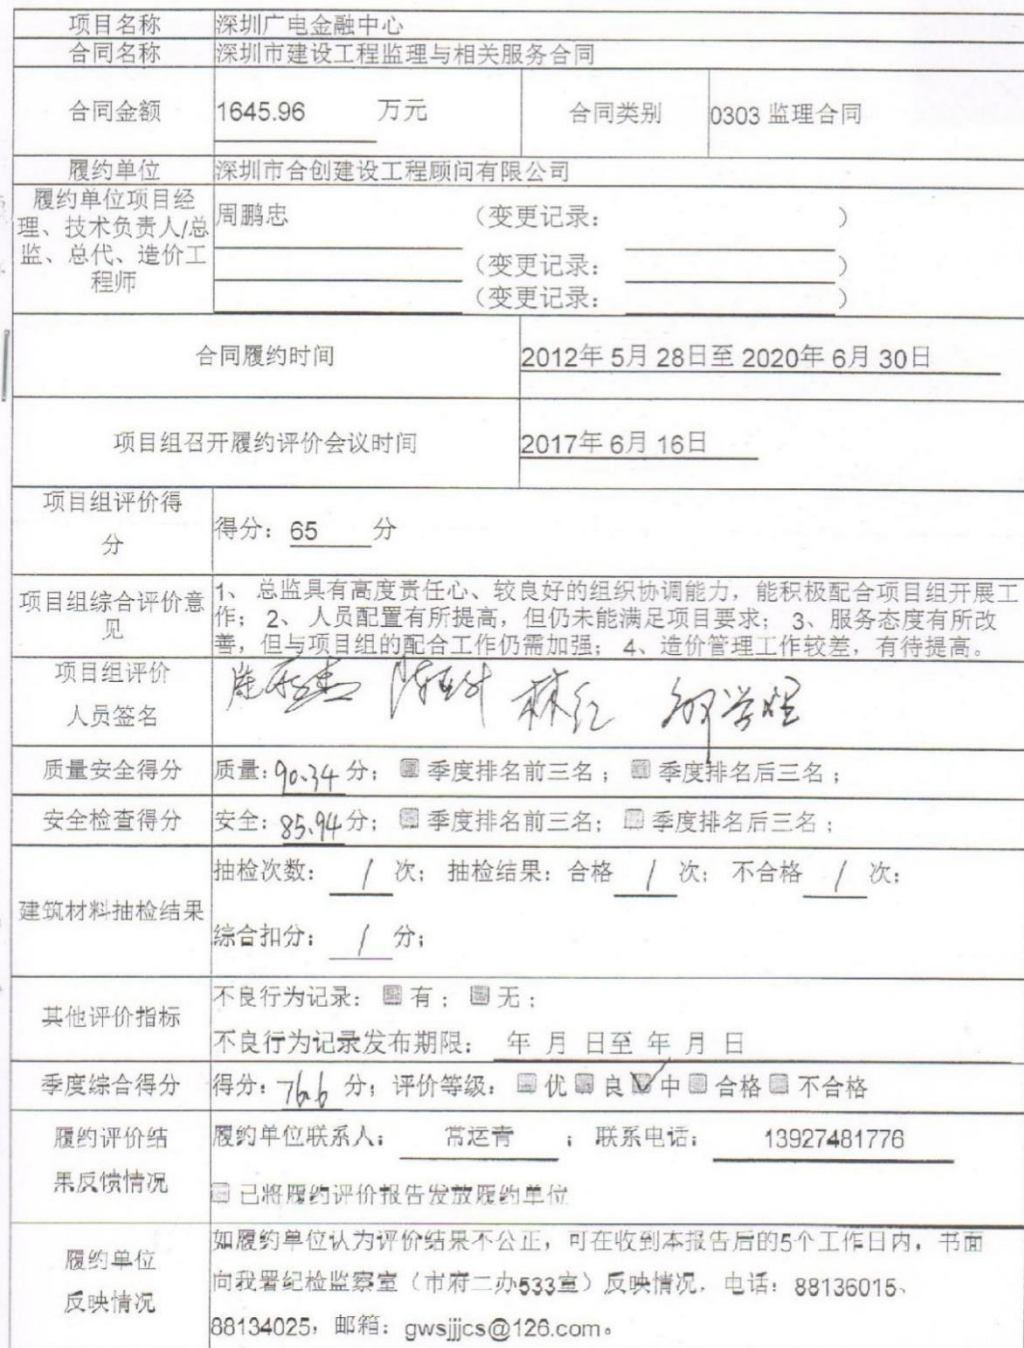 项目名称 深圳广电金融中心
合同名称 深圳市建设工程监理与相关服务合同
合同金额 1645.96 万元 合同类别 0303 监理合同
履约单位 深圳市合创建设工程顾问有限公司
履约单位项目经
理、技术负责人/总
监、总代、造价工
程师
周鹏忠 (变更记录: )
(变更记录: )
(变更记录: )
合同履约时间 2012年 5月 28日至 2020年 6月 30日
项目组召开履约评价会议时间 2017年 6月 16日
项目组评价得
分
得分: 65 分
项目组综合评价意
见
1、 总监具有高度责任心、较良好的组织协调能力，能积极配合项目组开展工
作；2、 人员配置有所提高，但仍未能满足项目要求；3、服务态度有所改
善，但与项目组的配合工作仍需加强；4、造价管理工作较差，有待提高。
项目组评价
人员签名
林红
质量安全得分 质量: 90.34 分； 季度排名前三名； 季度排名后三名；
安全检查得分 安全: 85.94 分； 季度排名前三名； 季度排名后三名；
建筑材料抽检结果
抽检次数: / 次；抽检结果: 合格 / 次；不合格 / 次；
综合扣分: / 分；
其他评价指标
不良行为记录: 有； 无；
不良行为记录发布期限: 年 月 日至 年 月 日
季度综合得分 得分: 76.6 分；评价等级: 优 良 ✓ 中 合格 不合格
履约评价结
果反馈情况
履约单位联系人: 常运青 ；联系电话: 13927481776
已将履约评价报告发放履约单位
履约单位
反映情况
如履约单位认为评价结果不公正，可在收到本报告后的5个工作日内，书面
向我署纪检监察室（市府二办533室）反映情况，电话: 88136015、
88134025，邮箱: gwsjjjcs@126.com。